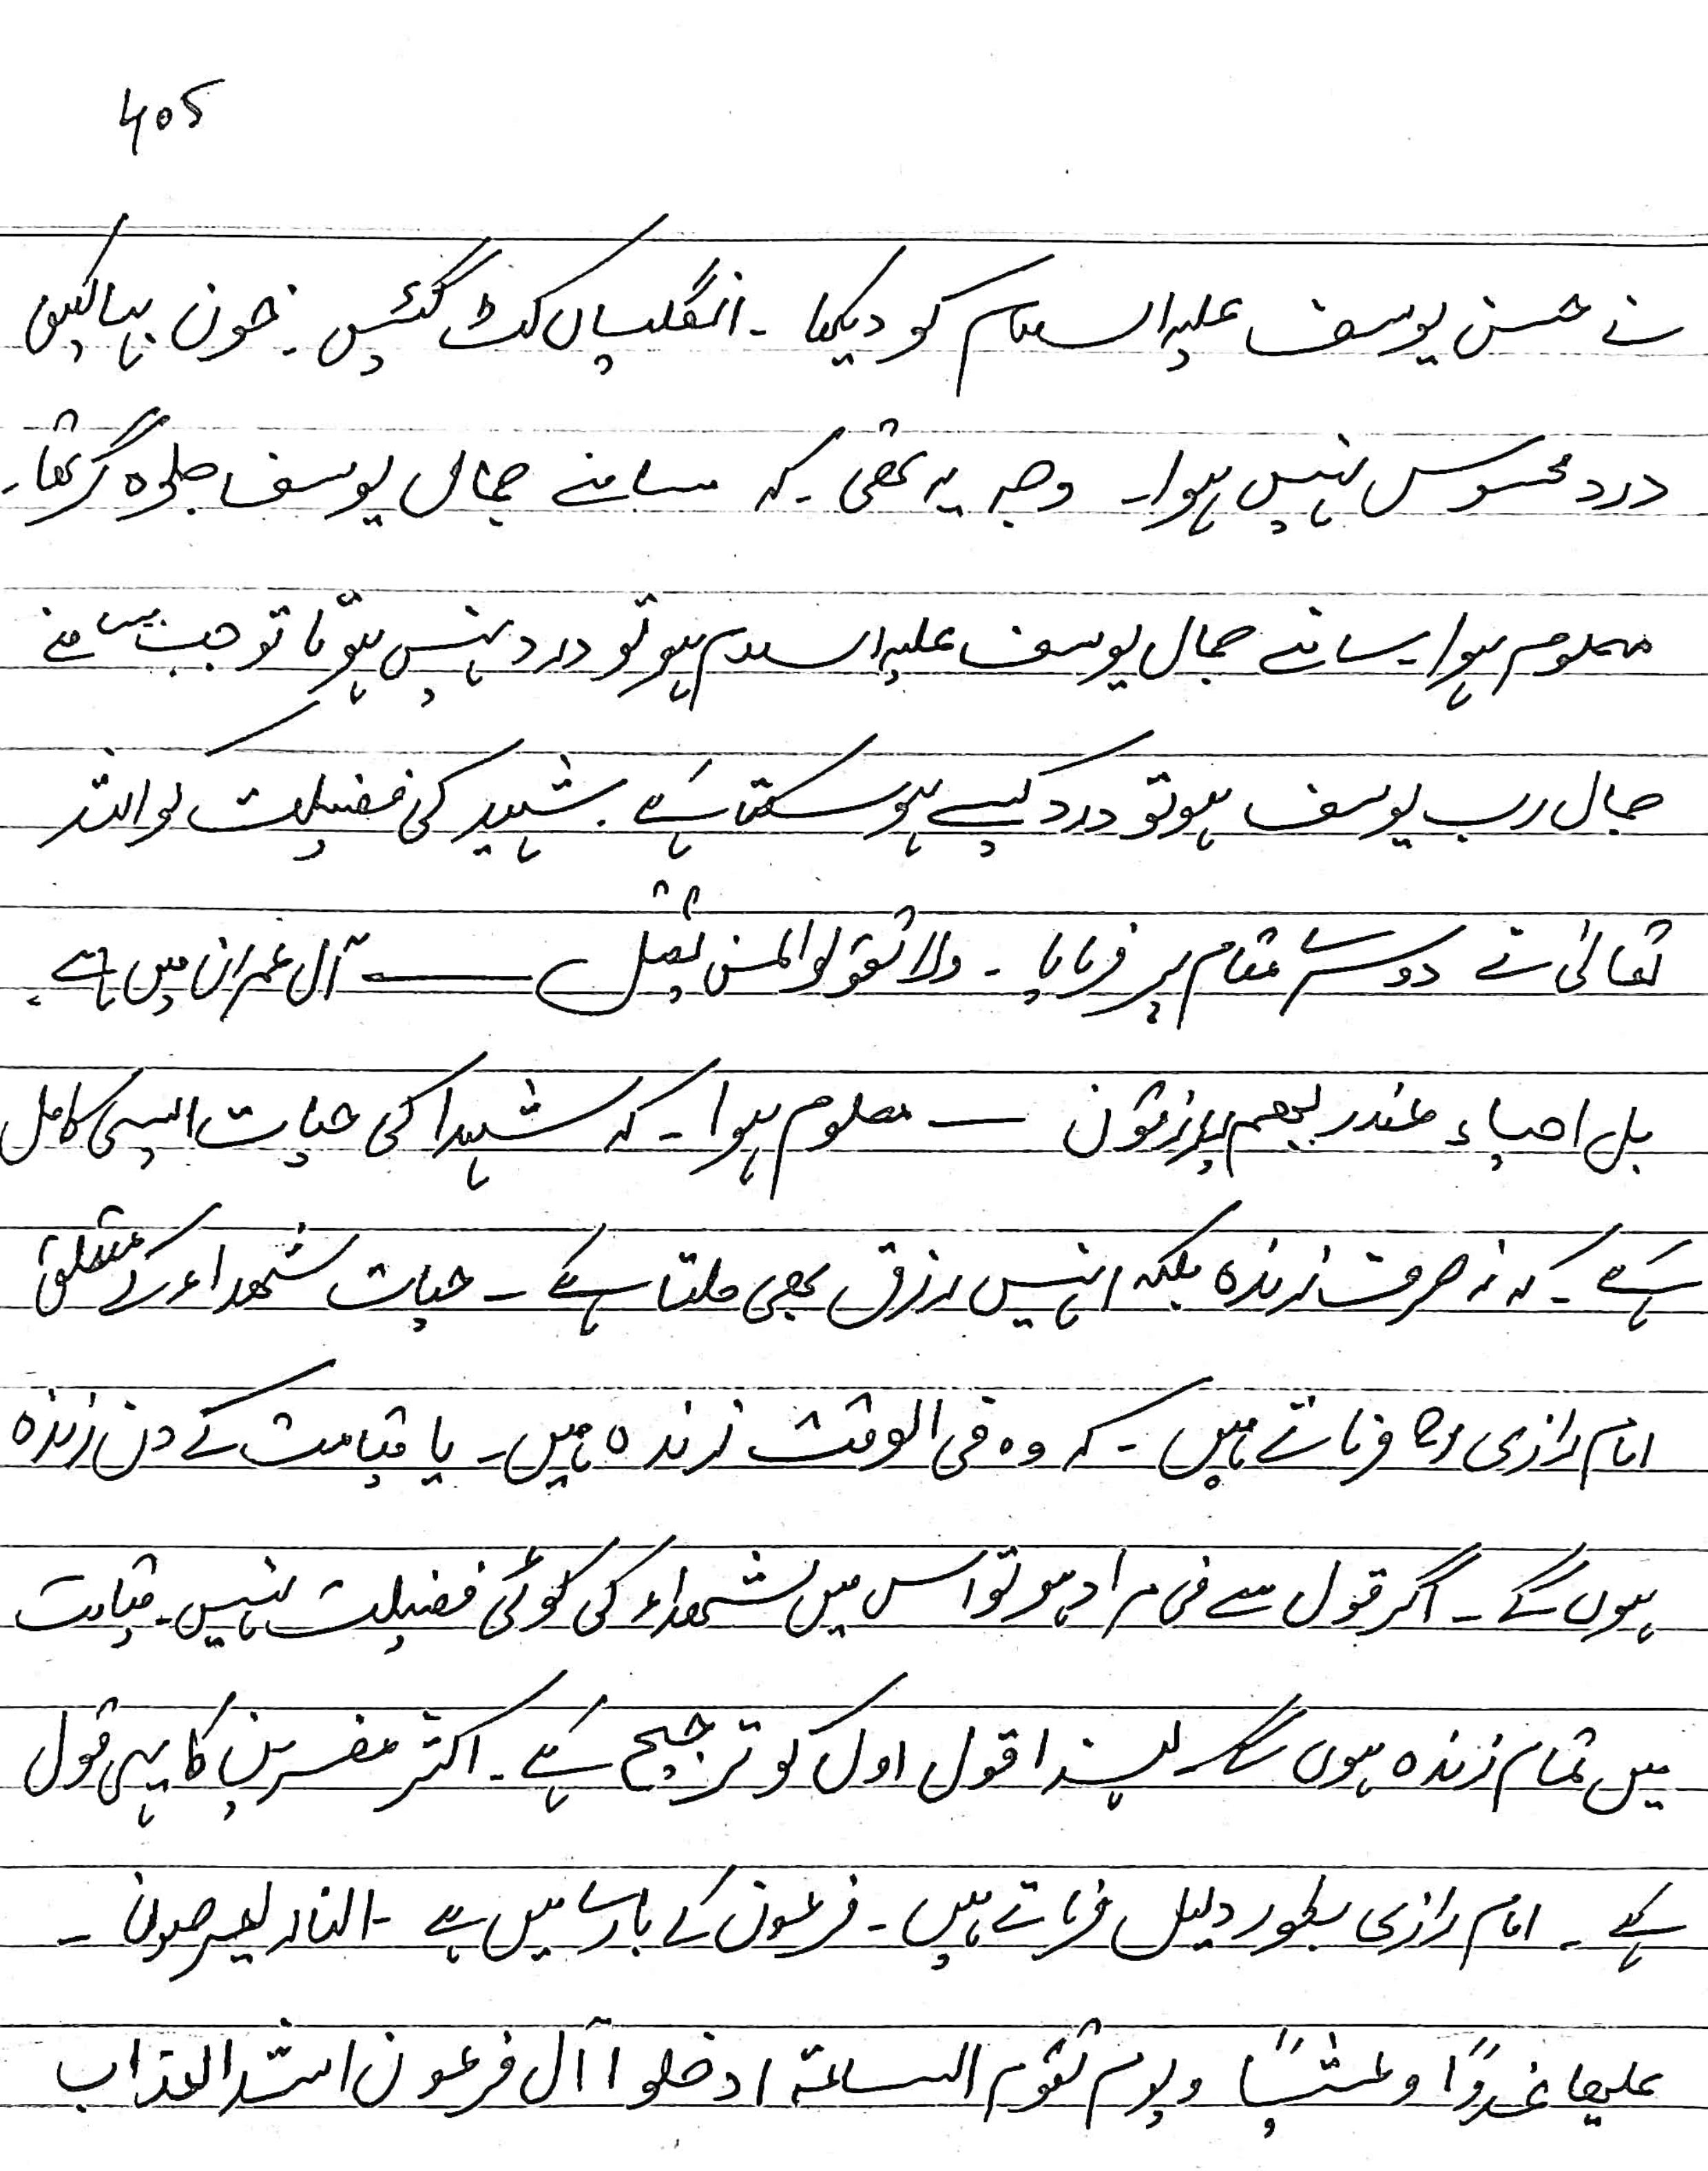 405
نے حسن یوسف علیہ السلام کو دیکھا ۔ انگلیاں کٹ گئیں ۔ خون بہا لیکن
درد محسوس نہیں ہوا۔ وجہ یہ تھی ۔ کہ سامنے جمال یوسف جلوہ گر تھا۔
معلوم ہوا۔ سامنے جمال یوسف علیہ السلام ہو تو درد نہیں ہوتا تو جب سامنے
جمال رب یوسف ہو تو درد کیسے ہو سکتا ہے ۔ شہید کی فضیلت کو اللہ
تعالیٰ نے دوسرے مقام پر فرمایا ۔ ولا تقولوا لمن یقتل — آل عمران میں ہے ۔
بل احیاء عند ربھم یرزقون — معلوم ہوا ۔ کہ شہدا کی حیات ایسی کامل
ہے ۔ کہ نہ صرف زندہ بلکہ انہیں رزق بھی ملتا ہے ۔ حیات شھداء کے متعلق
امام رازی رح فرماتے ہیں ۔ کہ وہ فی الوقت زندہ ہیں ۔ یا قیامت کے دن زندہ
ہوں گے ۔ اگر قول سے فی مراد ہو تو اس میں شھداء کی کوئی فضیلت نہیں ۔ قیامت
میں تمام زندہ ہوں گے لہذا قول اول کو ترجیح ہے ۔ اکثر مفسرین کا یہی قول
ہے ۔ امام رازی بطور دلیل فرماتے ہیں ۔ فرعون کے بارے میں ہے ۔ النار یعرضون ۔
علیھا غدوًا وعشیًا ویوم تقوم الساعۃ ادخلوا آل فرعون اشد العذاب